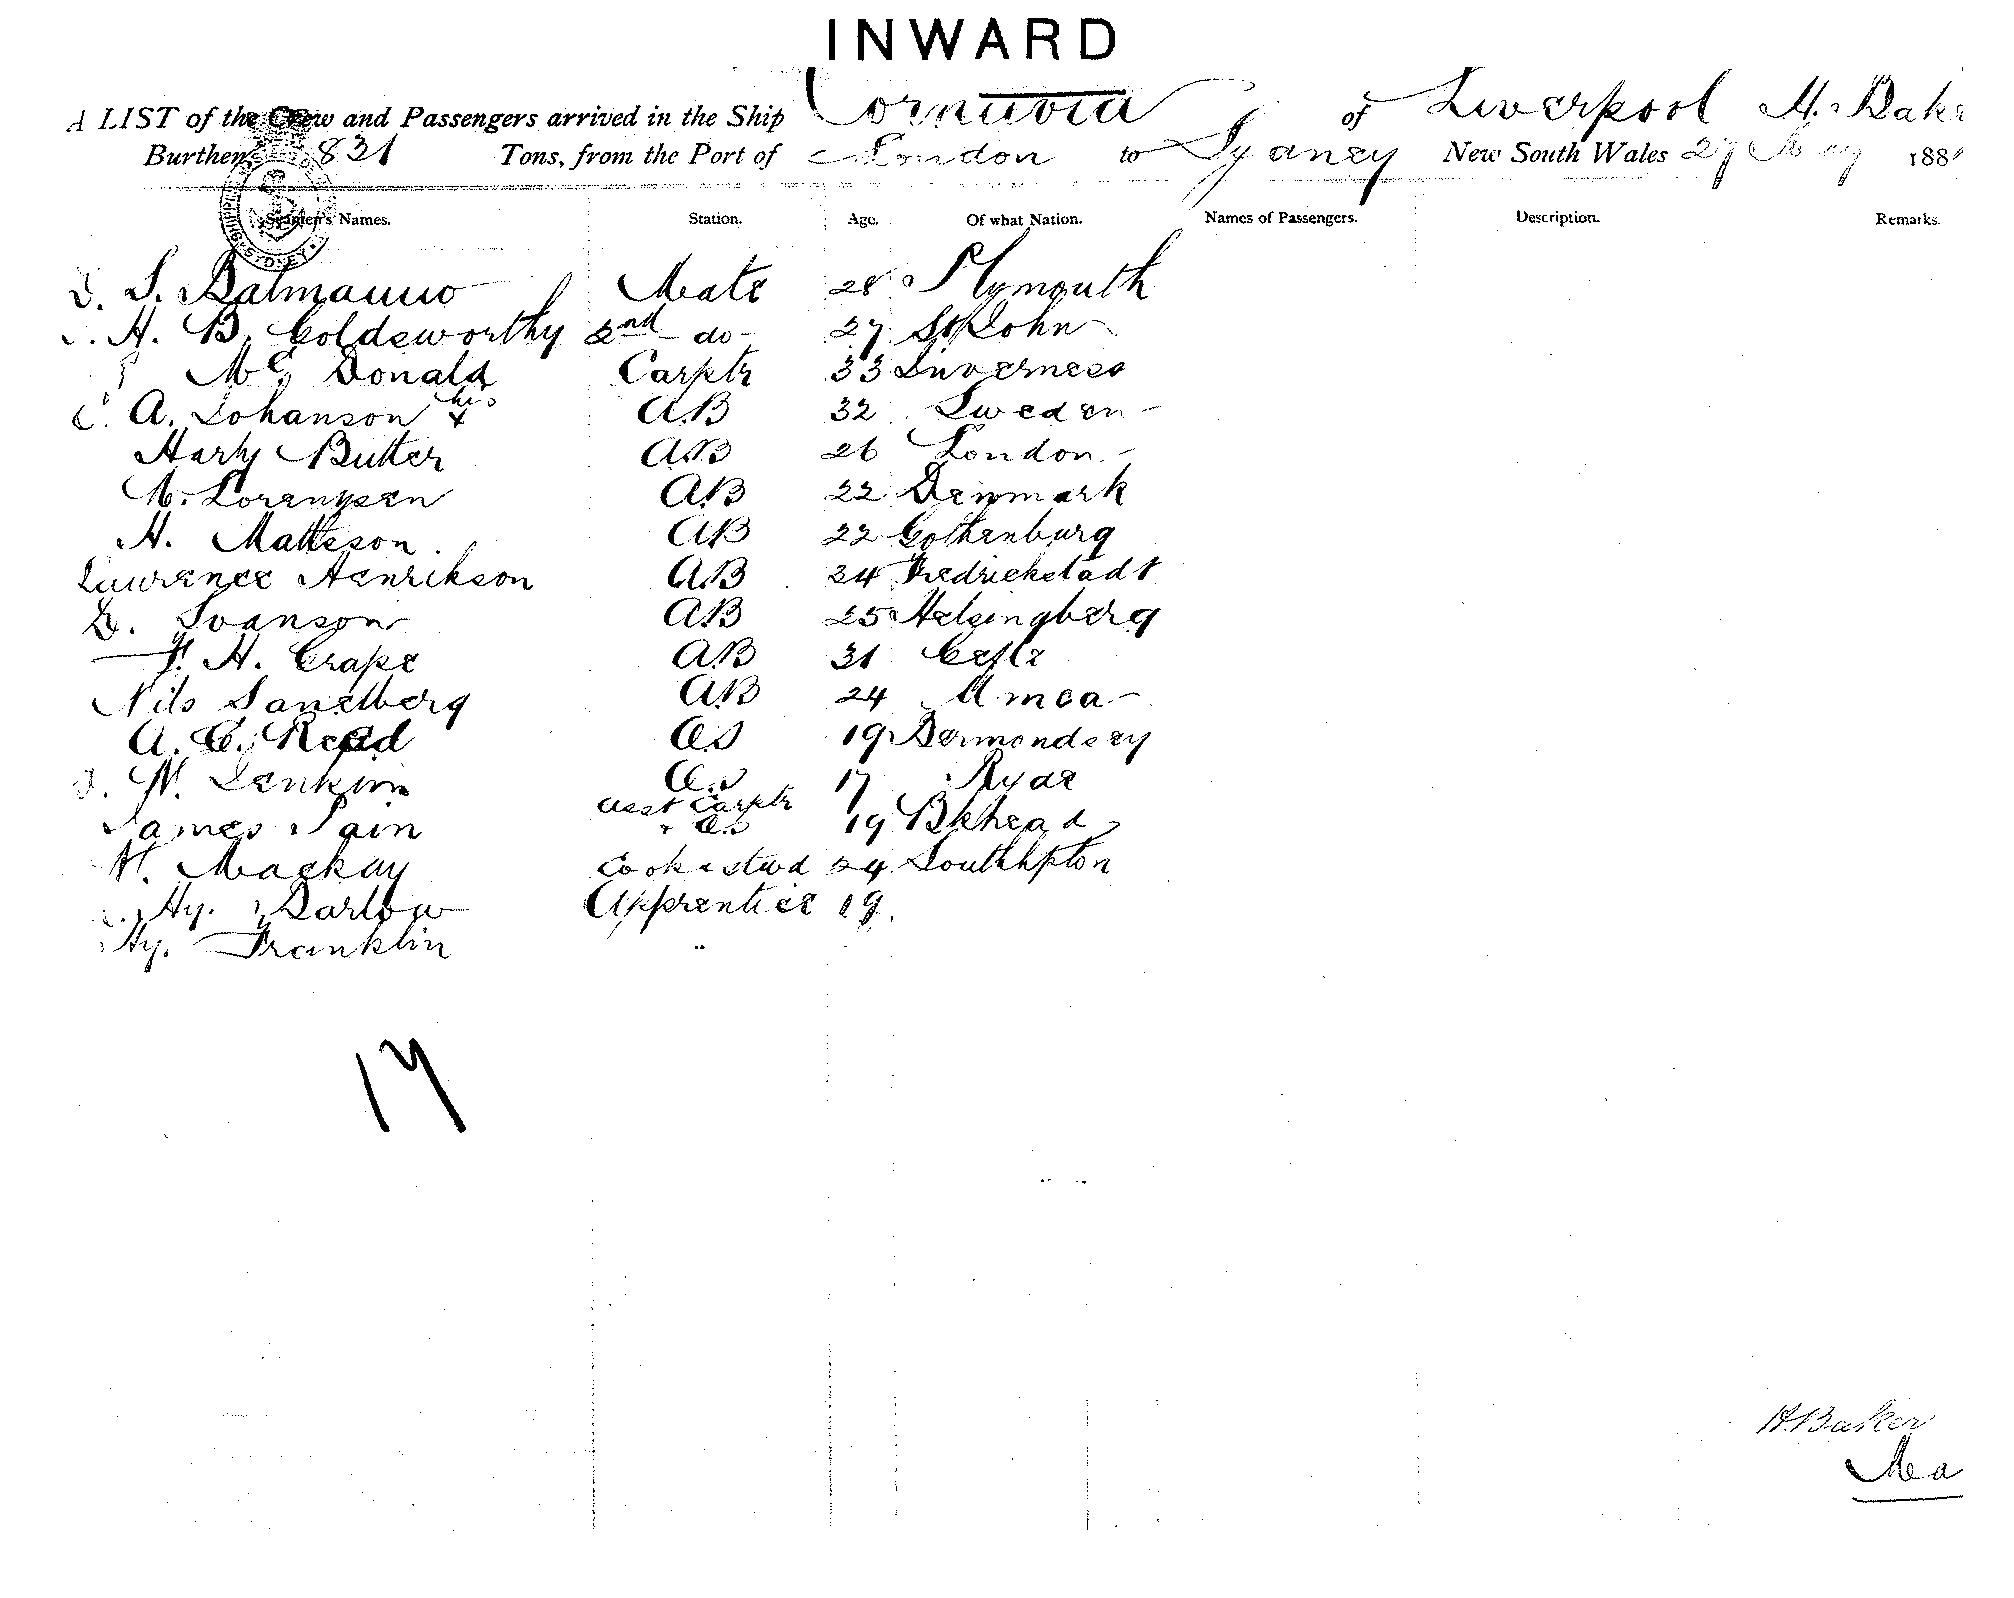 INWARD
A LIST of the Crew and Passengers arrived in the Ship Cornuvia of Liverpool H. Bake
Burthen 831 Tons, from the Port of London to Sydney New South Wales 27 May 188
Seamen's Names. Station. Age. Of what Nation. Names of Passengers. Description. Remarks.
S. Balmanno Mate 28 Plymouth
H. B. Goldsworthy 2nd do 27 St John
Mc Donald Carptr 33 Inverness
A. Johanson his x AB 32 Sweden
Harry Butter AB 26 London
M. Lorenysen AB 22 Denmark
H. Matteson AB 22 Gothenburg
Laurence Henrikson AB 24 Fredrickstadt
D. Svanson AB 25 Helsingberg
F. H. Crape AB 31 Gefle
Nils Sandberg AB 24 Umea
A. C. Read OS 19 Bermondsey
W. Jenkins OS 17 Ryde
James Pain Asst Carptr & OS 19 Bkhead
H. Mackay Cook & stwd 24 Southhpton
Hy. Barlow Apprentice 19.
Hy. Franklin "
17
H Baker
Ma